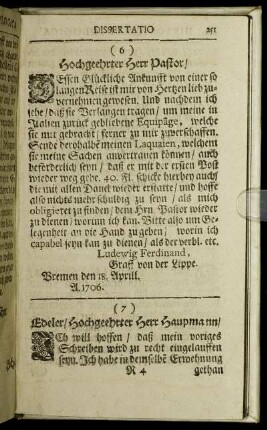 DISSERTATIO 251
(6)
Hochgeehrter Herr Pastor/
DEssen Glückliche Ankunfft von einer so
langen Reise ist mir von Hertzen lieb zu-
vernehmen gewesen. Und nachdem ich
sehe/ daß sie Verlangen tragen/ um meine in
Italien zurück gebliebene Equipage, welche
sie mit gebracht/ ferner zu mir zuverschaffen.
Sende derohalbe meinen Laquaien, welchem
sie meine Sachen anvertrauen können/ auch
beförderlich seyn/ daß er mit der ersten Post
wieder weg gehe. 40. Rl. schicke hierbey auch/
die mit allen Danck wieder erstatte/ und hoffe
also nichts mehr schuldig zu seyn/ als mich
obligieret zu finden/ dem Hrn. Pastor wieder
zu dienen/ worinn ich kan. Bitte also um Ge-
legenheit an die Hand zu geben/ worin ich
capabel seyn kan zu dienen/ als der verbl. etc.
Ludewig Ferdinand,
Graff von der Lippe.
Bremen den 18. Aprill.
A. 1706.
(7)
Edeler/ Hochgeehrter Herr Haupmann/
ICh will hoffen/ daß mein voriges
Schreiben wird zu recht eingelauffen
seyn. Ich habe in demselbē Erwehnung
R 4 gethan